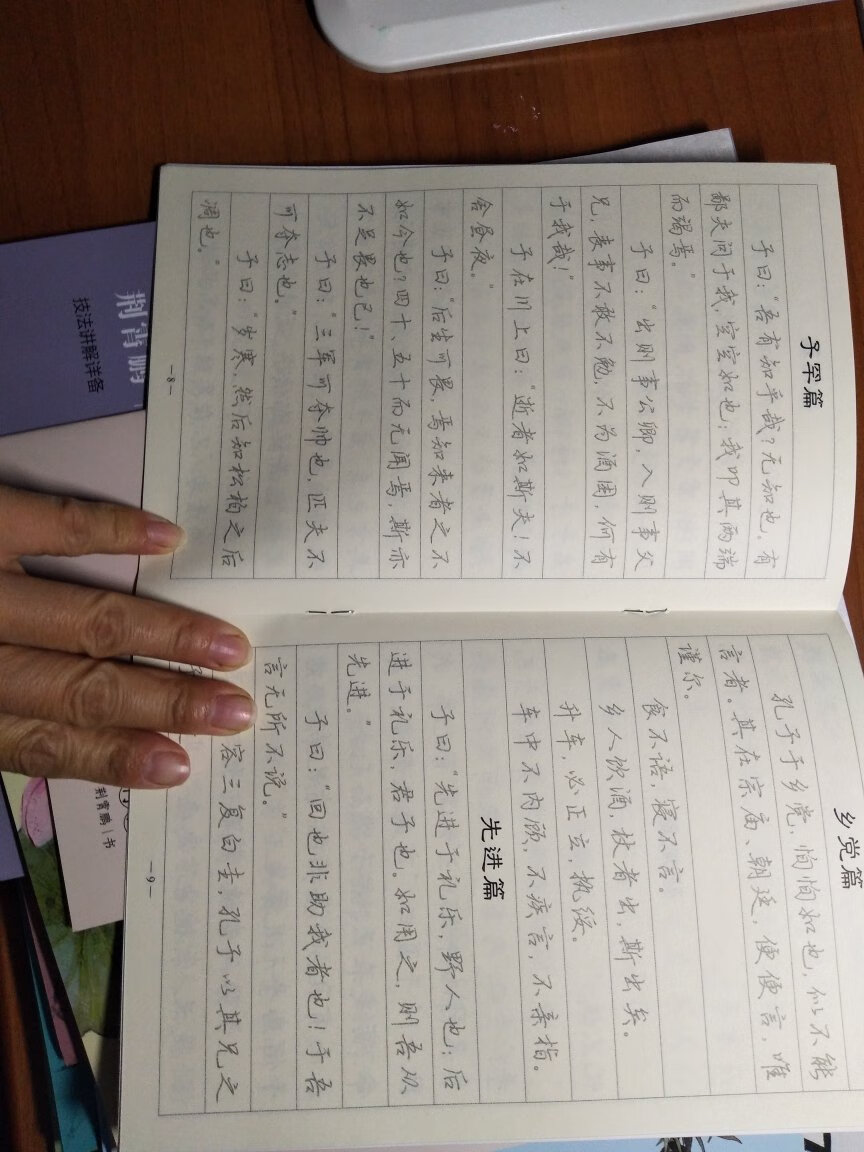 子罕篇
子曰：“吾有知乎哉？无知也。有
鄙夫问于我，空空如也；我叩其两端
而竭焉。”
子曰：“出则事公卿，入则事父
兄，丧事不敢不勉，不为酒困，何有
于我哉！”
子在川上曰：“逝者如斯夫！不
舍昼夜。”
子曰：“后生可畏，焉知来者之不
如今也？四十、五十而无闻焉，斯亦
不足畏也已！”
子曰：“三军可夺帅也，匹夫不
可夺志也。”
子曰：“岁寒，然后知松柏之后
凋也。”
—8—
乡党篇
孔子于乡党，恂恂如也，似不能
言者。其在宗庙、朝廷，便便言，唯
谨尔。
食不语，寝不言。
乡人饮酒，杖者出，斯出矣。
升车，必正立，执绥。
车中不内顾，不疾言，不亲指。
先进篇
子曰：“先进于礼乐，野人也；后
进于礼乐，君子也。如用之，则吾从
先进。”
子曰：“回也非助我者也！于吾
言无所不说。”
容三复白圭，孔子以其兄之
—9—
荆霄鹏
技法讲解详备
荆霄鹏 | 书